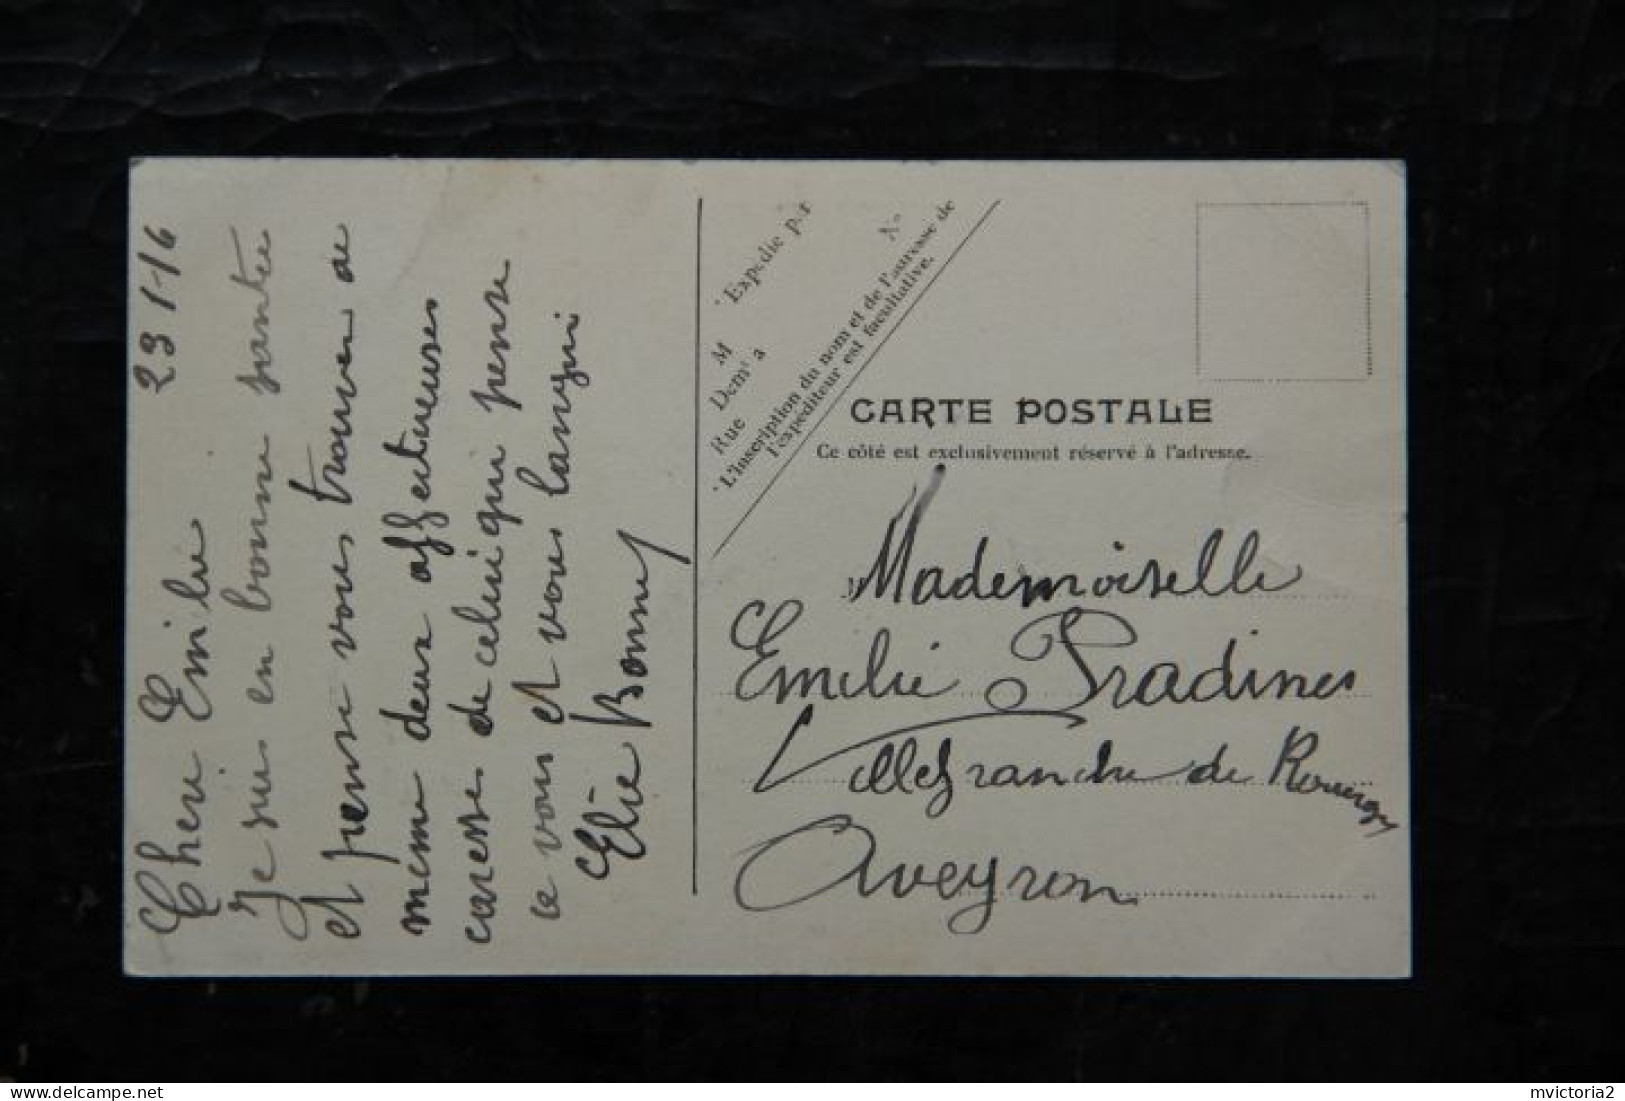 23 1-16
Chere Emilie
Je suis en bonne santée
et pense vous trouver de
meme deux affectueuses
caresse de celui qui pense
ce vous et vous langui
Elie Bonnef
Expédié par
M
Demt à
Rue
N°
L'inscription du nom et de l'adresse de
l'expéditeur est facultative.
CARTE POSTALE
Ce côté est exclusivement réservé à l'adresse.
Mademoiselle
Emilie Pradines
Villefranche de Rouergue
Aveyron
delcampe.net
mvictoria2